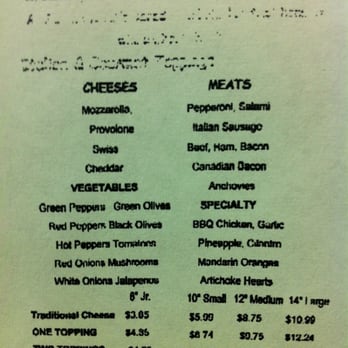 CHEESES MEATS
Mozzarella, Pepperoni, Salami
Provolone Italian Sausage
Swiss Beef, Ham, Bacon
Cheddar Canadian Bacon
VEGETABLES Anchovies
Green Peppers Green Olives SPECIALTY
Red Peppers Black Olives BBQ Chicken, Garlic
Hot Peppers Tomatoes Pineapple, Cilantro
Red Onions Mushrooms Mandarin Oranges
White Onions Jalapenos Artichoke Hearts
6" Jr. 10" Small 12" Medium 14" Large
Traditional Cheese $5.99 $8.75 $10.99
ONE TOPPING $4.35 $9.75 $12.24
TWO TOPPINGS